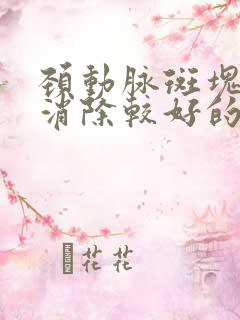 頚動脉斑塊
消除較好的
花花